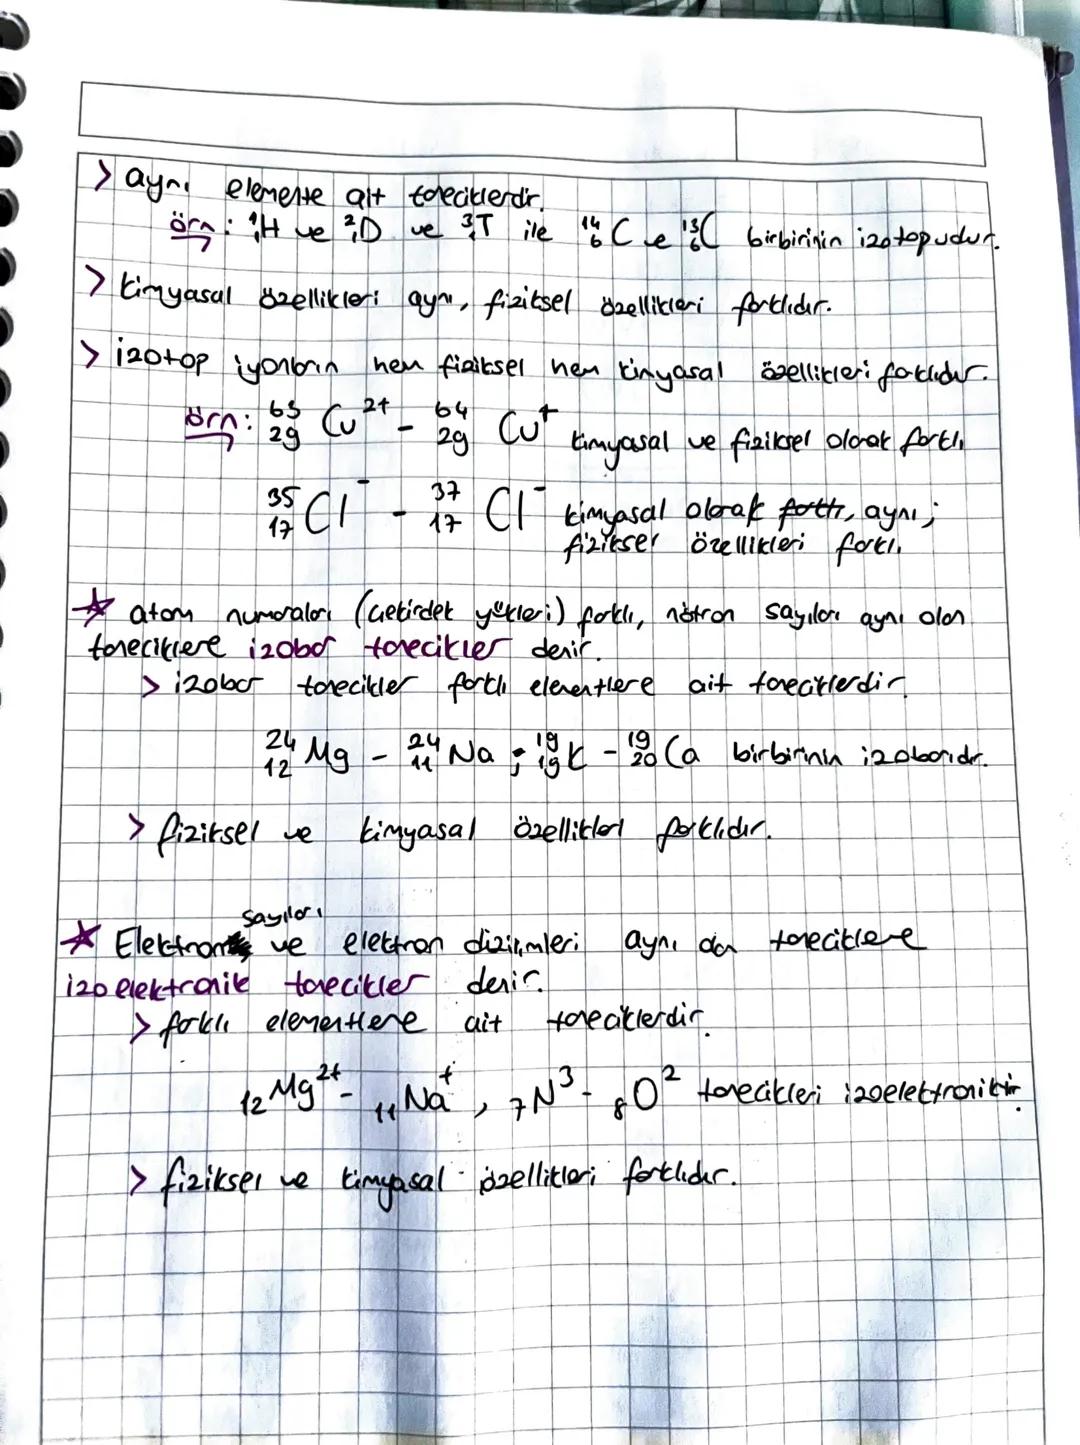 > aynı elemente ait taneciklerdir.
örn: ¹₁H ve ²₁D ve ³₁T ile ¹⁴₆C ve ¹³₆C birbirinin izotopudur.
> kimyasal özellikleri aynı, fiziksel özellikleri farklıdır.
> izotop iyonların hem fiziksel hem kimyasal özellikleri farklıdır.
örn: ⁶³₂₉Cu²⁺ - ⁶⁴₂₉Cu⁺ kimyasal ve fiziksel olarak farklı
³⁵₁₇Cl⁻ - ³⁷₁₇Cl⁻ kimyasal olarak farklı, aynı;
fiziksel özellikleri farklı
★ atom numaraları (çekirdek yükleri) farklı, nötron sayıları aynı olan
taneciklere izobar tanecikler denir.
> izobar tanecikler farklı elementlere ait taneciklerdir.
²⁴₁₂Mg - ²⁴₁₁Na ; ¹⁹₁₉K - ¹⁹₂₀Ca birbirinin izobarıdır.
> fiziksel ve kimyasal özellikleri farklıdır.
sayıları
★ Elektron ve elektron dizilimleri aynı olan taneciklere
izoelektronik tanecikler denir.
> farklı elementlere ait taneciklerdir.
₁₂Mg²⁺ - ₁₁Na⁺, ₇N³ - ₈O² tanecikleri izoelektroniktir.
> fiziksel ve kimyasal özellikleri farklıdır.